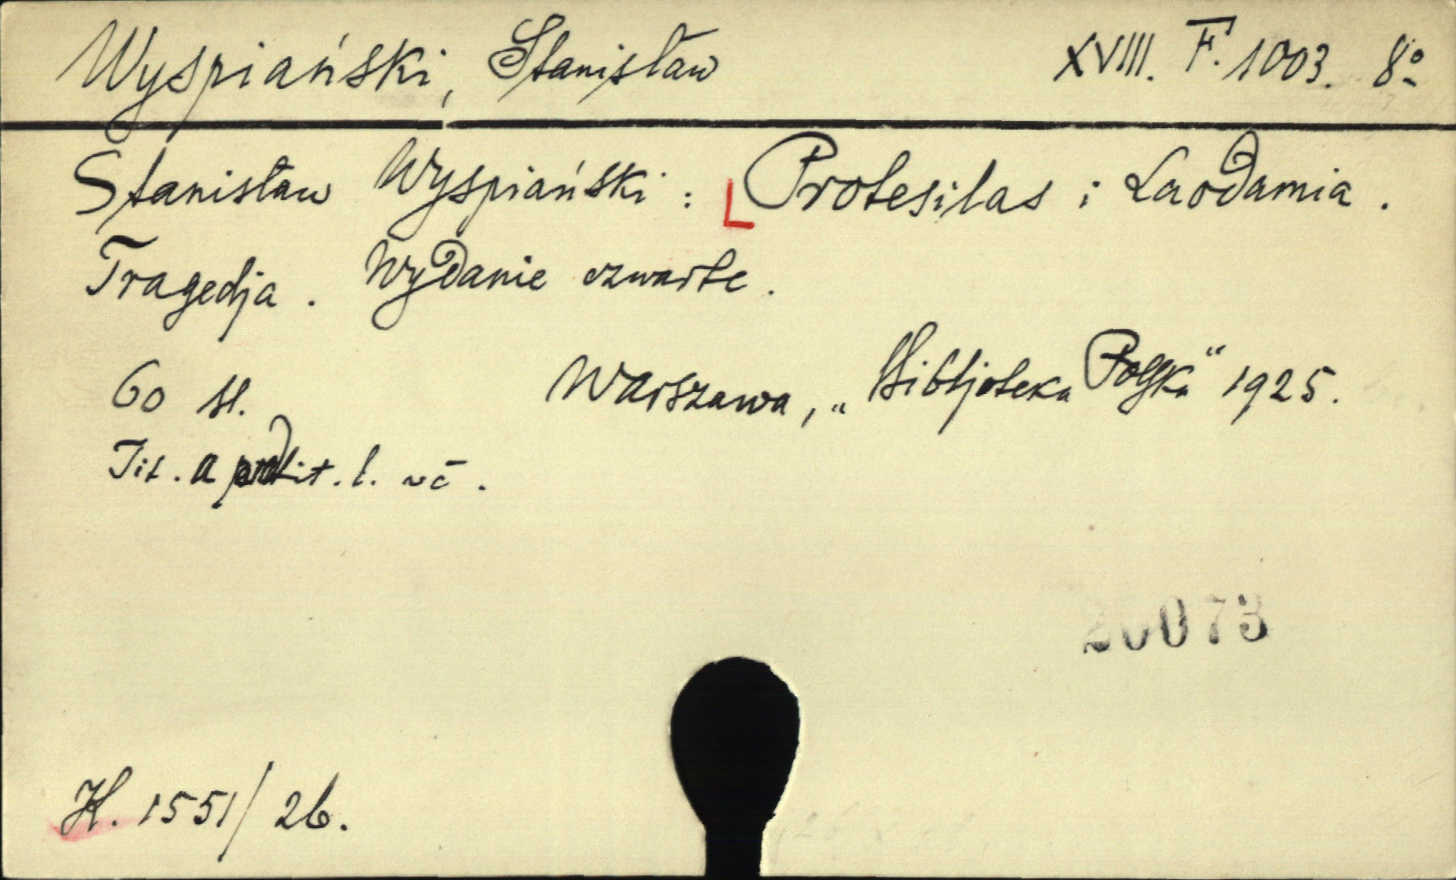 Wyspiański, Stanisław XVIII. F. 1003. 8º
Stanisław Wyspiański: Protesilas i Laodamia.
Tragedja. Wydanie czwarte.
60 st. Warszawa, „Bibljoteka Polska" 1925.
Tit. a podtit. l. vč.
20073
H. 1551/26.